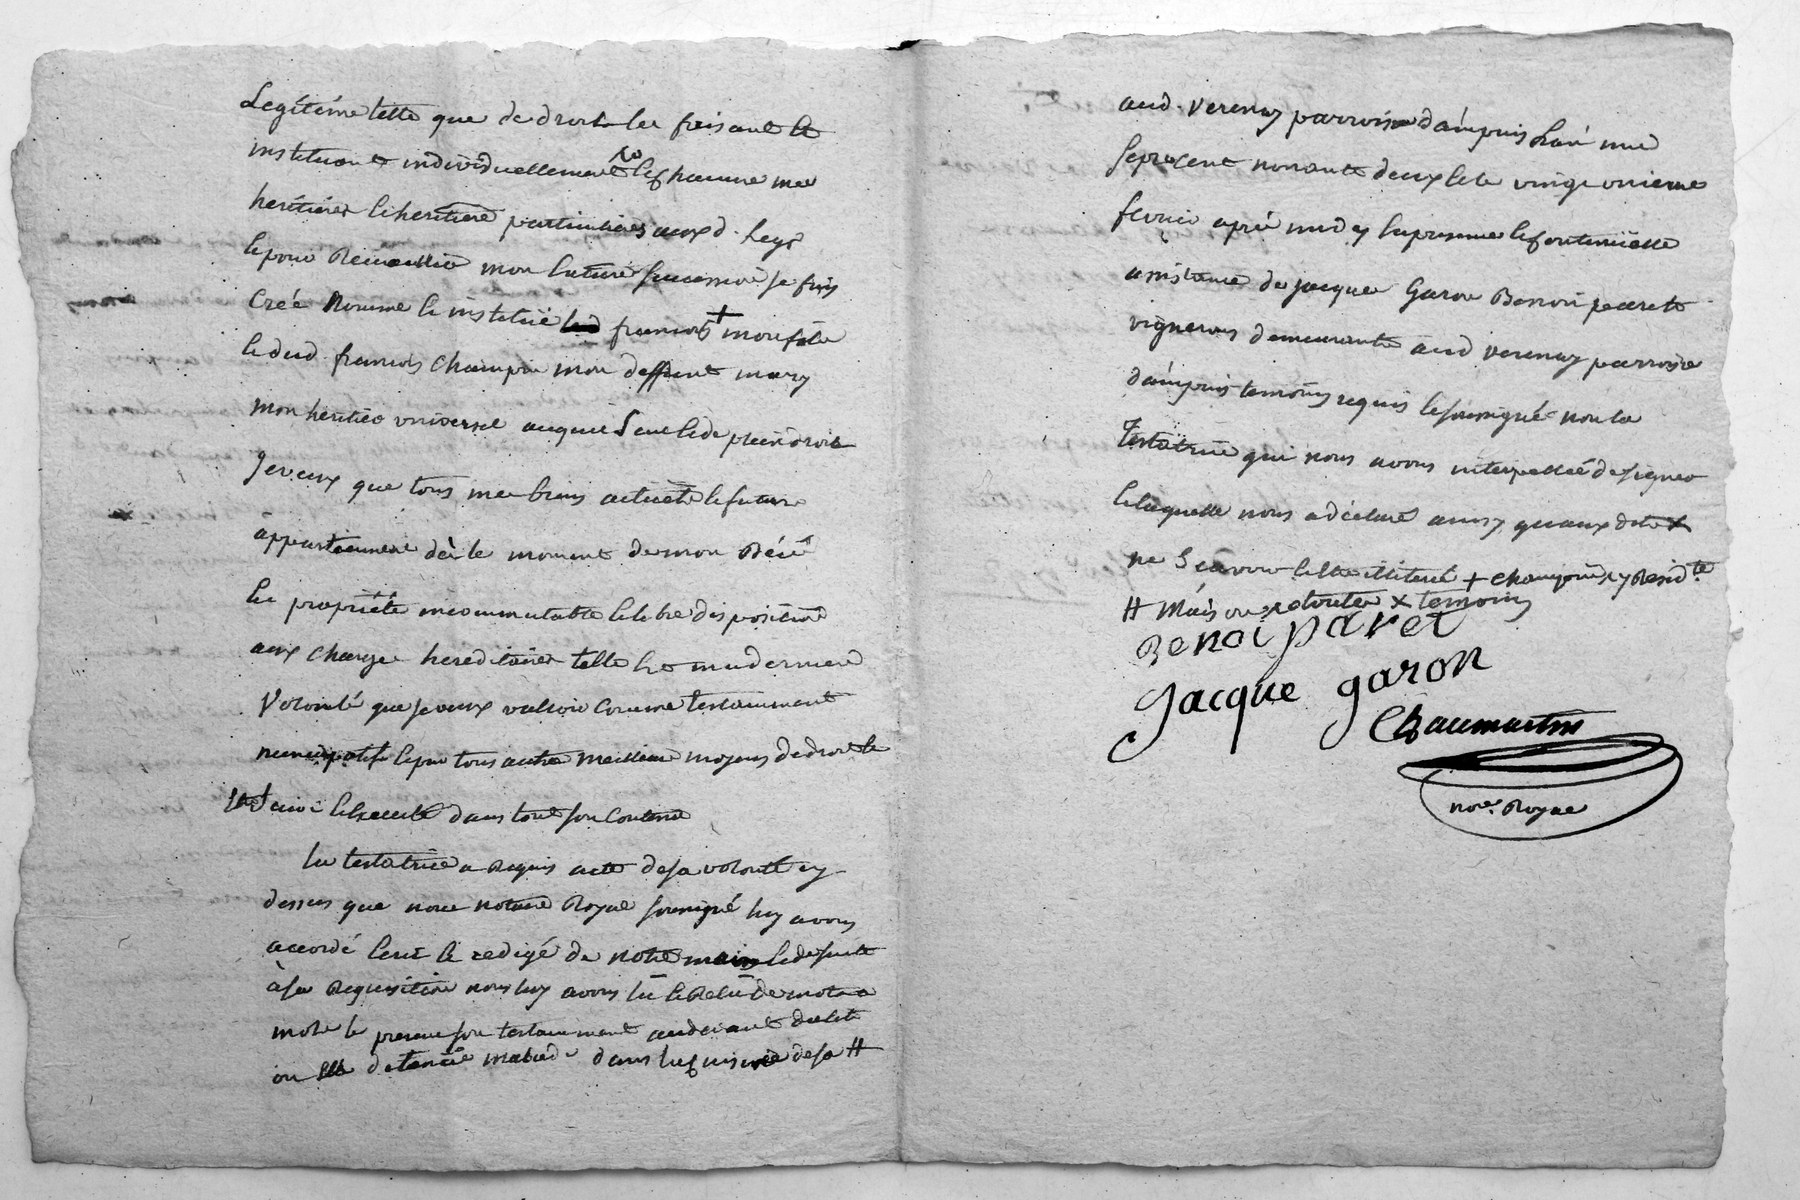 Legitime telle que de droit les faisant et
instituant individuellement chacune mes
heritiers et heritiere particuliers aud. legs
et pour Recueillir mon future succession je fais
Créé Nomme et institue françois + mon fils
et dud. françois champin mon deffunt mary
mon heritier universel auquel seul et de plein droit
Je veux que tous mes biens actuels et future
appartiennent dès le moment de mon Décés
en propriété incommutable et libre disposition
aux charges hereditaires telle est ma derniere
Volonté que je veux valloir comme testamment
nuncupatif et par tous autre Meilleur moyens de droit et
et executé dans tout son Contenu
la testatrice a Requis acte de sa volonté cy
dessus que nous notaire Royal soussigné luy avons
accordé ecrit et redigé de notre main et de suite
à sa Requisition nous luy avons lû et Relû de mot a
mot le present son testamment au devant du lit
ou elle detenüe malade dans la cuisine de sa #
aud. Verenay parroisse dampuis L'an mil
sept cent nonante deux et le vingt unieme
fevrier aprés midy en presence et
assistance de jacque Garon Benoit paret
vignerons demeurants aud verenay parroisse
dampuis temoins requis et soussignés non la
Testatrice qui nous avons interpellé de signer
et laquelle nous a déclaré
ne Scavoir + champin y Resid.te
# Maison x temoins
Benoi paret
Jacque garon
Chaumartin
nore. Royal